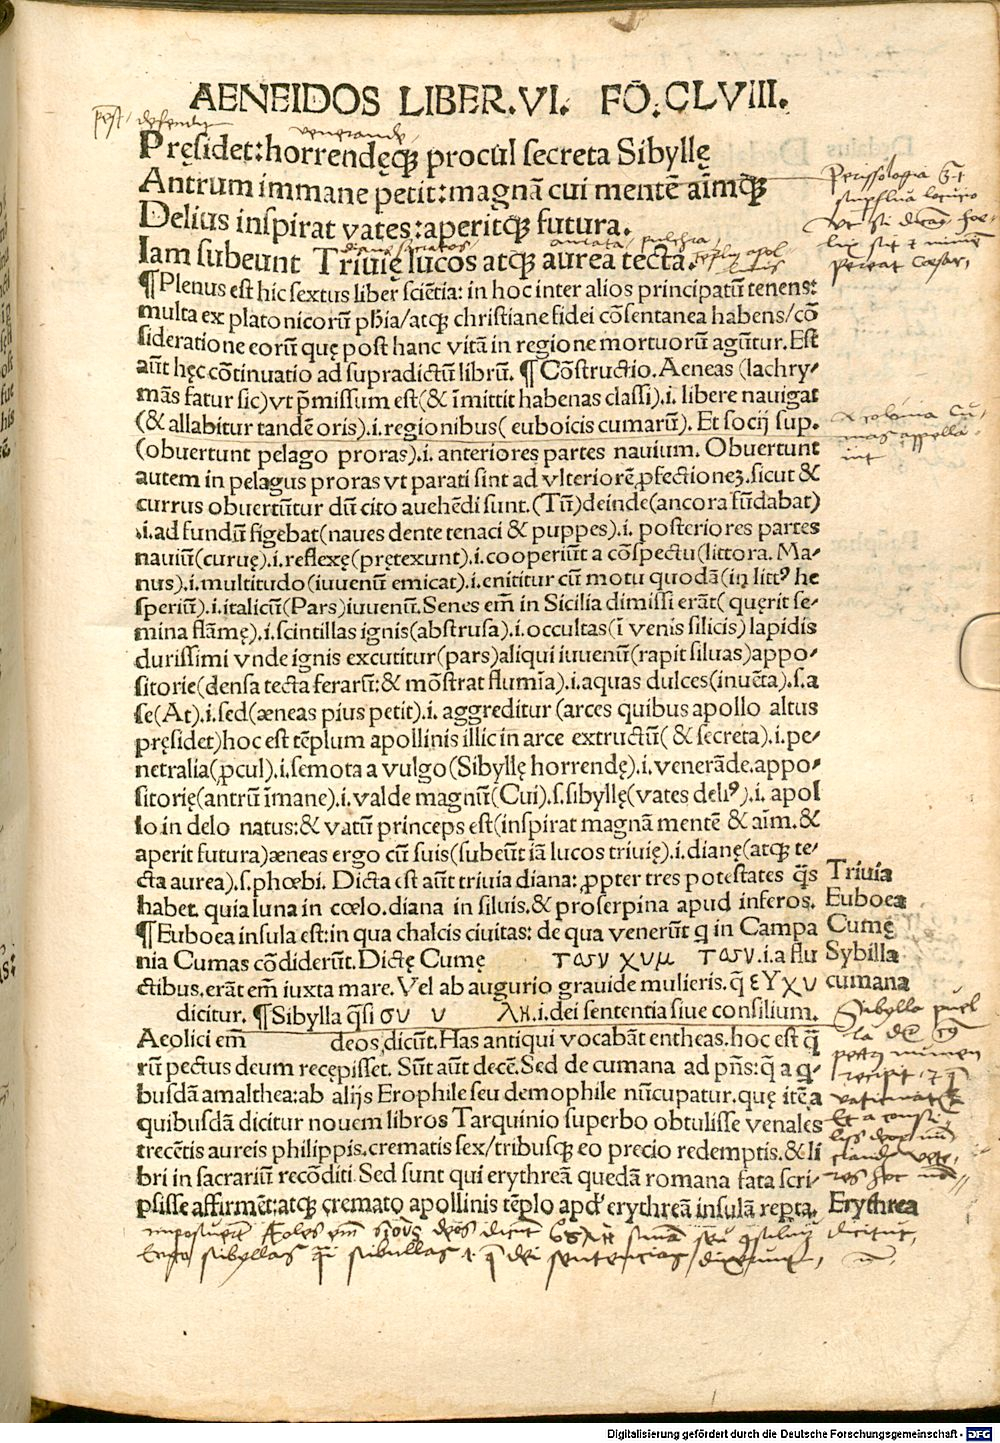 AENEIDOS LIBER.VI. FŌ.CLVIII.
Pręsidet:horrendęq̃ procul secreta Sibyllę
Antrum immane petit:magnã cui mentẽ aĩmq̃
Delius inspirat vates:aperitq̃ futura.
Iam subeunt Triuię lucos atq̃ aurea tecta.
¶Plenus est hic sextus liber sciẽtia: in hoc inter alios principatũ tenens:
multa ex platonicorũ pħia/atq̃ christiane fidei cõsentanea habens/cõ
sideratione eorũ quę post hanc vitã in regione mortuorũ agũtur. Est
aũt hęc cõtinuatio ad supradictũ librũ. ¶Cõstructio. Aeneas (lachry-
mãs fatur sic)vt p̃missum est(& ĩmittit habenas classi).i. libere nauigat
(& allabitur tandẽ oris).i.regionibus( euboicis cumarũ). Et socij sup.
(obuertunt pelago proras).i. anteriores partes nauium. Obuertunt
autem in pelagus proras vt parati sint ad vlteriorẽ ꝓfectioneꝫ.sicut &
currus obuertũtur dũ cito auehẽdi sunt.(Tũ)deinde(ancora fũdabat)
.i.ad fundũ figebat(naues dente tenaci & puppes).i. posteriores partes
nauiũ(curuę).i.reflexę(prętexunt).i.cooperiũt a cõspectu(littora. Ma-
nus).i.multitudo(iuuenũ emicat).i.enititur cũ motu quodã(in littꝰ he
speriũ).i.italicũ(Pars)iuuenũ.Senes em̃ in Sicilia dimissi erãt( quęrit se-
mina flãmę).i.scintillas ignis(abstrusa).i.occultas(ĩ venis silicis)lapidis
durissimi vnde ignis excutitur(pars)aliqui iuuenũ(rapit siluas)appo-
sitorie(densa tecta ferarũ:& mõstrat flumĩa).i.aquas dulces(inuẽta).s.a
se(At).i.sed(æneas pius petit).i. aggreditur (arces quibus apollo altus
pręsidet)hoc est tẽplum apollinis illic in arce extructũ( & secreta).i.pe-
netralia(ꝓcul).i.semota a vulgo(Sibyllę horrendę).i.venerãde.appo-
sitorię(antrũ ĩmane).i.valde magnũ(Cui).s.sibyllę(vates deliꝰ).i. apol
lo in delo natus:& vatũ princeps est(inspirat magnã mentẽ & aĩm.&
aperit futura)æneas ergo cũ suis(subeũt iã lucos triuię).i.dianę(atq̃ te-
cta aurea).s.phœbi. Dicta est aũt triuia diana: ꝓpter tres potestates q̃s
habet. quia luna in cœlo.diana in siluis.& proserpina apud inferos.
Triuia
Euboea
¶Euboea insula est:in qua chalcis ciuitas: de qua venerũt q in Campa
Cumę
nia Cumas cõdiderũt.Dictę Cumę τασυ χυμ τασυ.i.a flu
Sybilla
ctibus.erãt em̃ iuxta mare. Vel ab augurio grauide mulieris.q̃ εΥχυ
cumana
dicitur. ¶Sibylla q̃si συ υ λη.i.dei sententia siue consilium.
Aeolici em̃ deos dicũt.Has antiqui vocabãt entheas.hoc est q̃
rũ pectus deum recępisset. Sũt aũt decẽ.Sed de cumana ad pñs:q̃ a q
busdã amalthea:ab alijs Erophile seu demophile nũcupatur.quę itẽ a
quibusdã dicitur nouem libros Tarquinio superbo obtulisse venales
trecẽtis aureis philippis.crematis sex/tribusq̃ eo precio redemptis.& li
bri in sacrariũ recõditi. Sed sunt qui erythreã quedã romana fata scri-
psisse affirmẽt:atq̃ cremato apollinis tẽplo apđ erythreã insulã reꝑta.
Erythrea